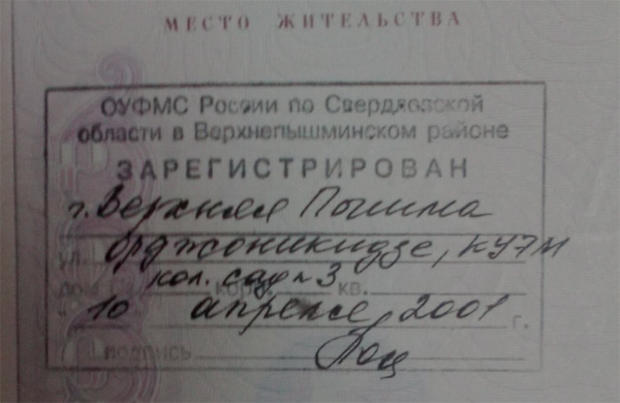 МЕСТО ЖИТЕЛЬСТВА
ОУФМС России по Свердловской
области в Верхнепышминском районе
ЗАРЕГИСТРИРОВАН
г. Верхняя Пышма
ул. Орджоникидзе,
дом кол. сад № 3 корп. кв.
" 10 апреля 2001 г.
подпись